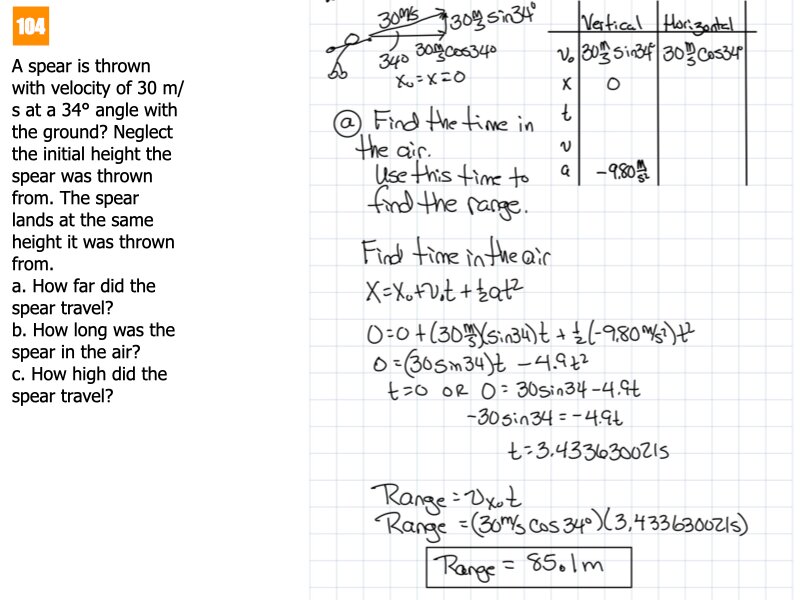 104
A spear is thrown
with velocity of 30 m/
s at a 34º angle with
the ground? Neglect
the initial height the
spear was thrown
from. The spear
lands at the same
height it was thrown
from.
a. How far did the
spear travel?
b. How long was the
spear in the air?
c. How high did the
spear travel?
30m/s 30 m/s sin34°
34° 30 m/s cos34°
x₀=x=0
Vertical Horizontal
v₀ 30 m/s sin34° 30 m/s cos34°
x 0
t
v
a -9.80 m/s²
(a) Find the time in
the air.
Use this time to
find the range.
Find time in the air
X=X₀+v₀t+½at²
0=0+(30 m/s)(sin34)t+½(-9.80 m/s²)t²
0=(30sin34)t-4.9t²
t=0 OR 0=30sin34-4.9t
-30sin34=-4.9t
t=3.433630021s
Range=vx₀t
Range=(30m/s cos34°)(3.433630021s)
Range=85.1m